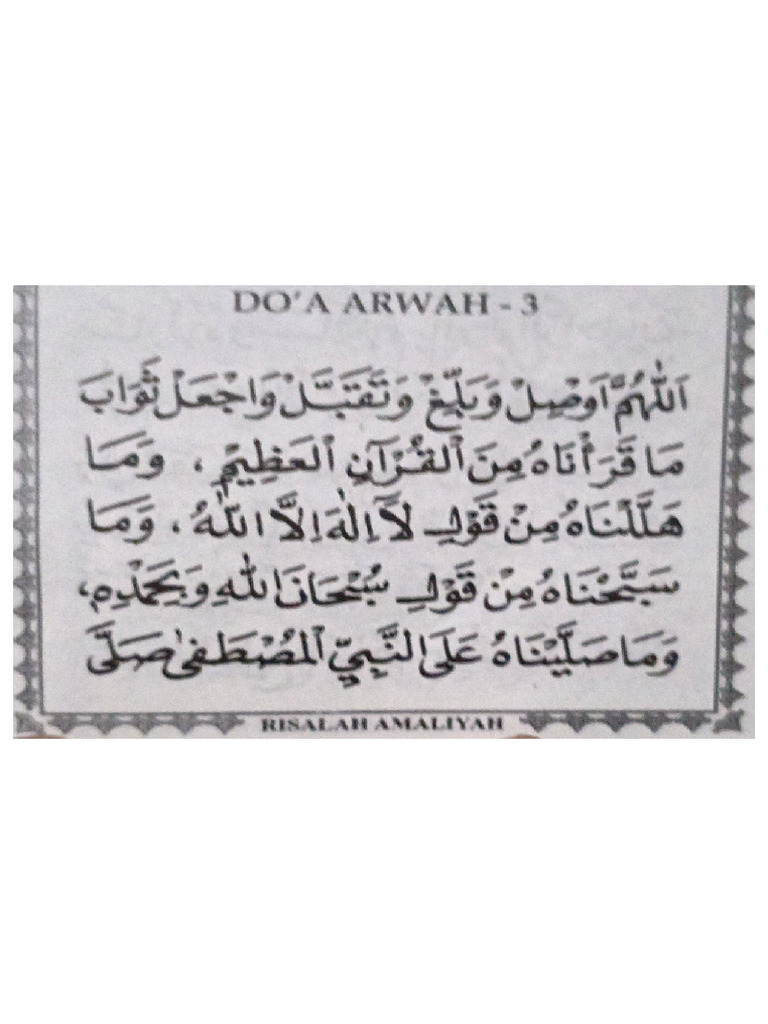 DO'A ARWAH - 3
اَللّٰهُمَّ اَوْصِلْ وَبَلِّغْ وَتَقَبَّلْ وَاجْعَلْ ثَوَابَ
مَا قَرَأْنَاهُ مِنَ الْقُرْآنِ الْعَظِيْمِ ، وَمَا
هَلَّلْنَاهُ مِنْ قَوْلِ لَآ اِلٰهَ اِلَّا اللّٰهُ ، وَمَا
سَبَّحْنَاهُ مِنْ قَوْلِ سُبْحَانَ اللّٰهِ وَبِحَمْدِهِ ،
وَمَا صَلَّيْنَاهُ عَلَى النَّبِيِّ الْمُصْطَفٰى صَلَّى
RISALAH AMALIYAH